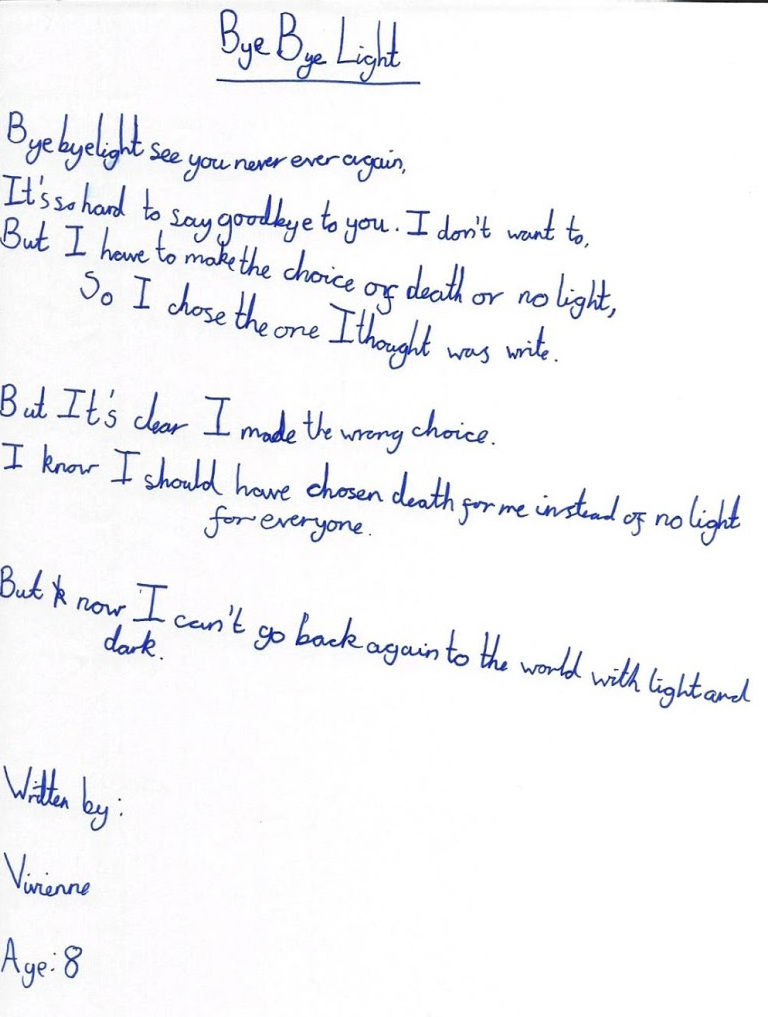 Bye Bye Light
Bye bye light see you never ever again,
It's so hard to say goodbye to you. I don't want to,
But I have to make the choice of death or no light,
So I chose the one I thought was write.
But It's clear I made the wrong choice.
I know I should have chosen death for me instead of no light
for everyone.
But now I can't go back again to the world with light and
dark.
Written by:
Vivienne
Age: 8